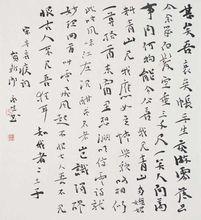 甚矣吾衰矣悵平生交遊零落只
今餘幾白髮空垂三千丈一笑人間萬
事問何物能令公喜我見青山多嫵媚
料青山見我應如是情與貌略相似
一尊搔首東窗裏想淵明停雲詩就
此時風味江左沉酣求名者豈識濁醪
妙理回首叫雲飛風起不恨古人吾不見
恨古人不見吾狂耳 知我者二三子
辛棄疾詞
賀新郎